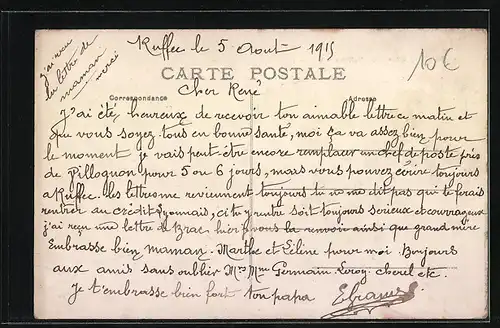 Ruffec le 5 Août 1915
j'ai reçu
la lettre de
maman
merci
10€
CARTE POSTALE
Correspondance
Adresse
Cher René
J'ai été heureux de recevoir ton aimable lettre ce matin et
que vous soyez tous en bonne santé, moi ça va assez bien pour
le moment je vais peut-être encore remplacer un chef de poste près
de Pillognon pour 5 ou 6 jours, mais vous pouvez écrire toujours
à Ruffec. les lettres me reviennent toujours tu ne me dit pas qui te ferais
rentrer au crédit Lyonnais, si tu y rentre soit toujours serieux et courageux
j'ai reçu une lettre d' hier vous la revoir ainsi que grand mère
Embrasse bien maman. Marthe et Céline pour moi. Bonjours
aux amis sans oublier Mr Mme Germain Leroy cherel etc.
je t'embrasse bien fort ton papa